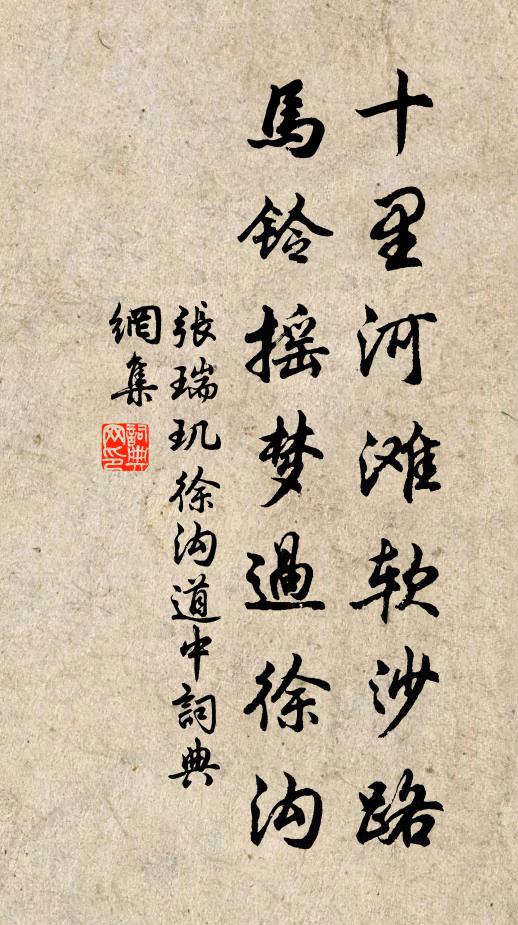 十里河滩软沙路
馬铃摇梦過徐沟
張瑞玑徐沟道中詞典
網集
詞典
网印